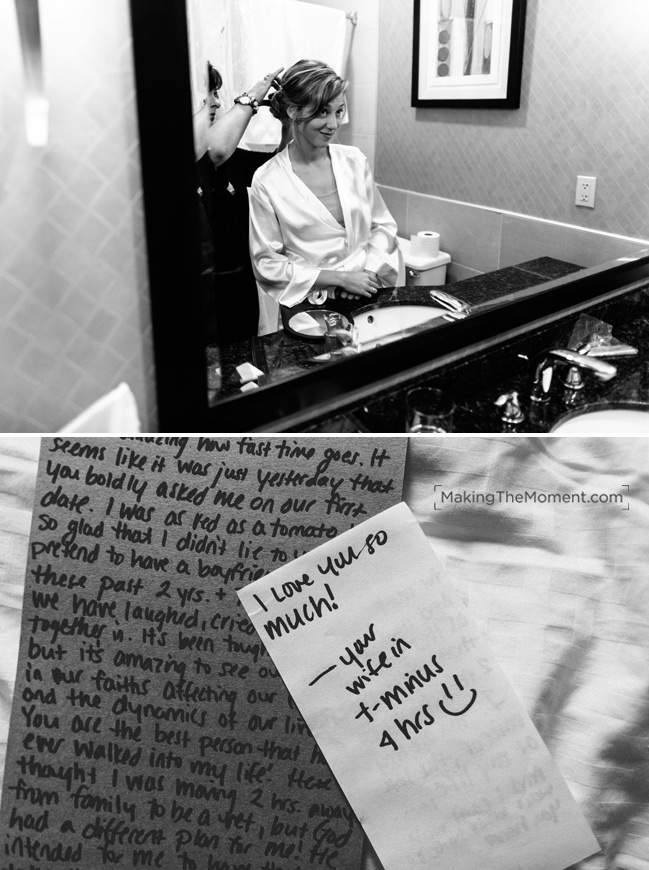 MakingTheMoment.com
amazing how fast time goes. It
seems like it was just yesterday that
you boldly asked me on our first
date. I was as red as a tomato
so glad that I didn't lie to
pretend to have a boyfrie
these past 2 yrs. +
we have laughed, cried
together in. It's been toug
but it's amazing to see ou
in our faiths affecting our
and the dynamics of our liv
You are the best person that h
ever walked into my life! Here
thought I was moving 2 hrs. away
from family to be a vet, but God
had a different plan for me! He
intended for me to have
I Love you so
much!
— your
wife in
t-minus
4 hrs